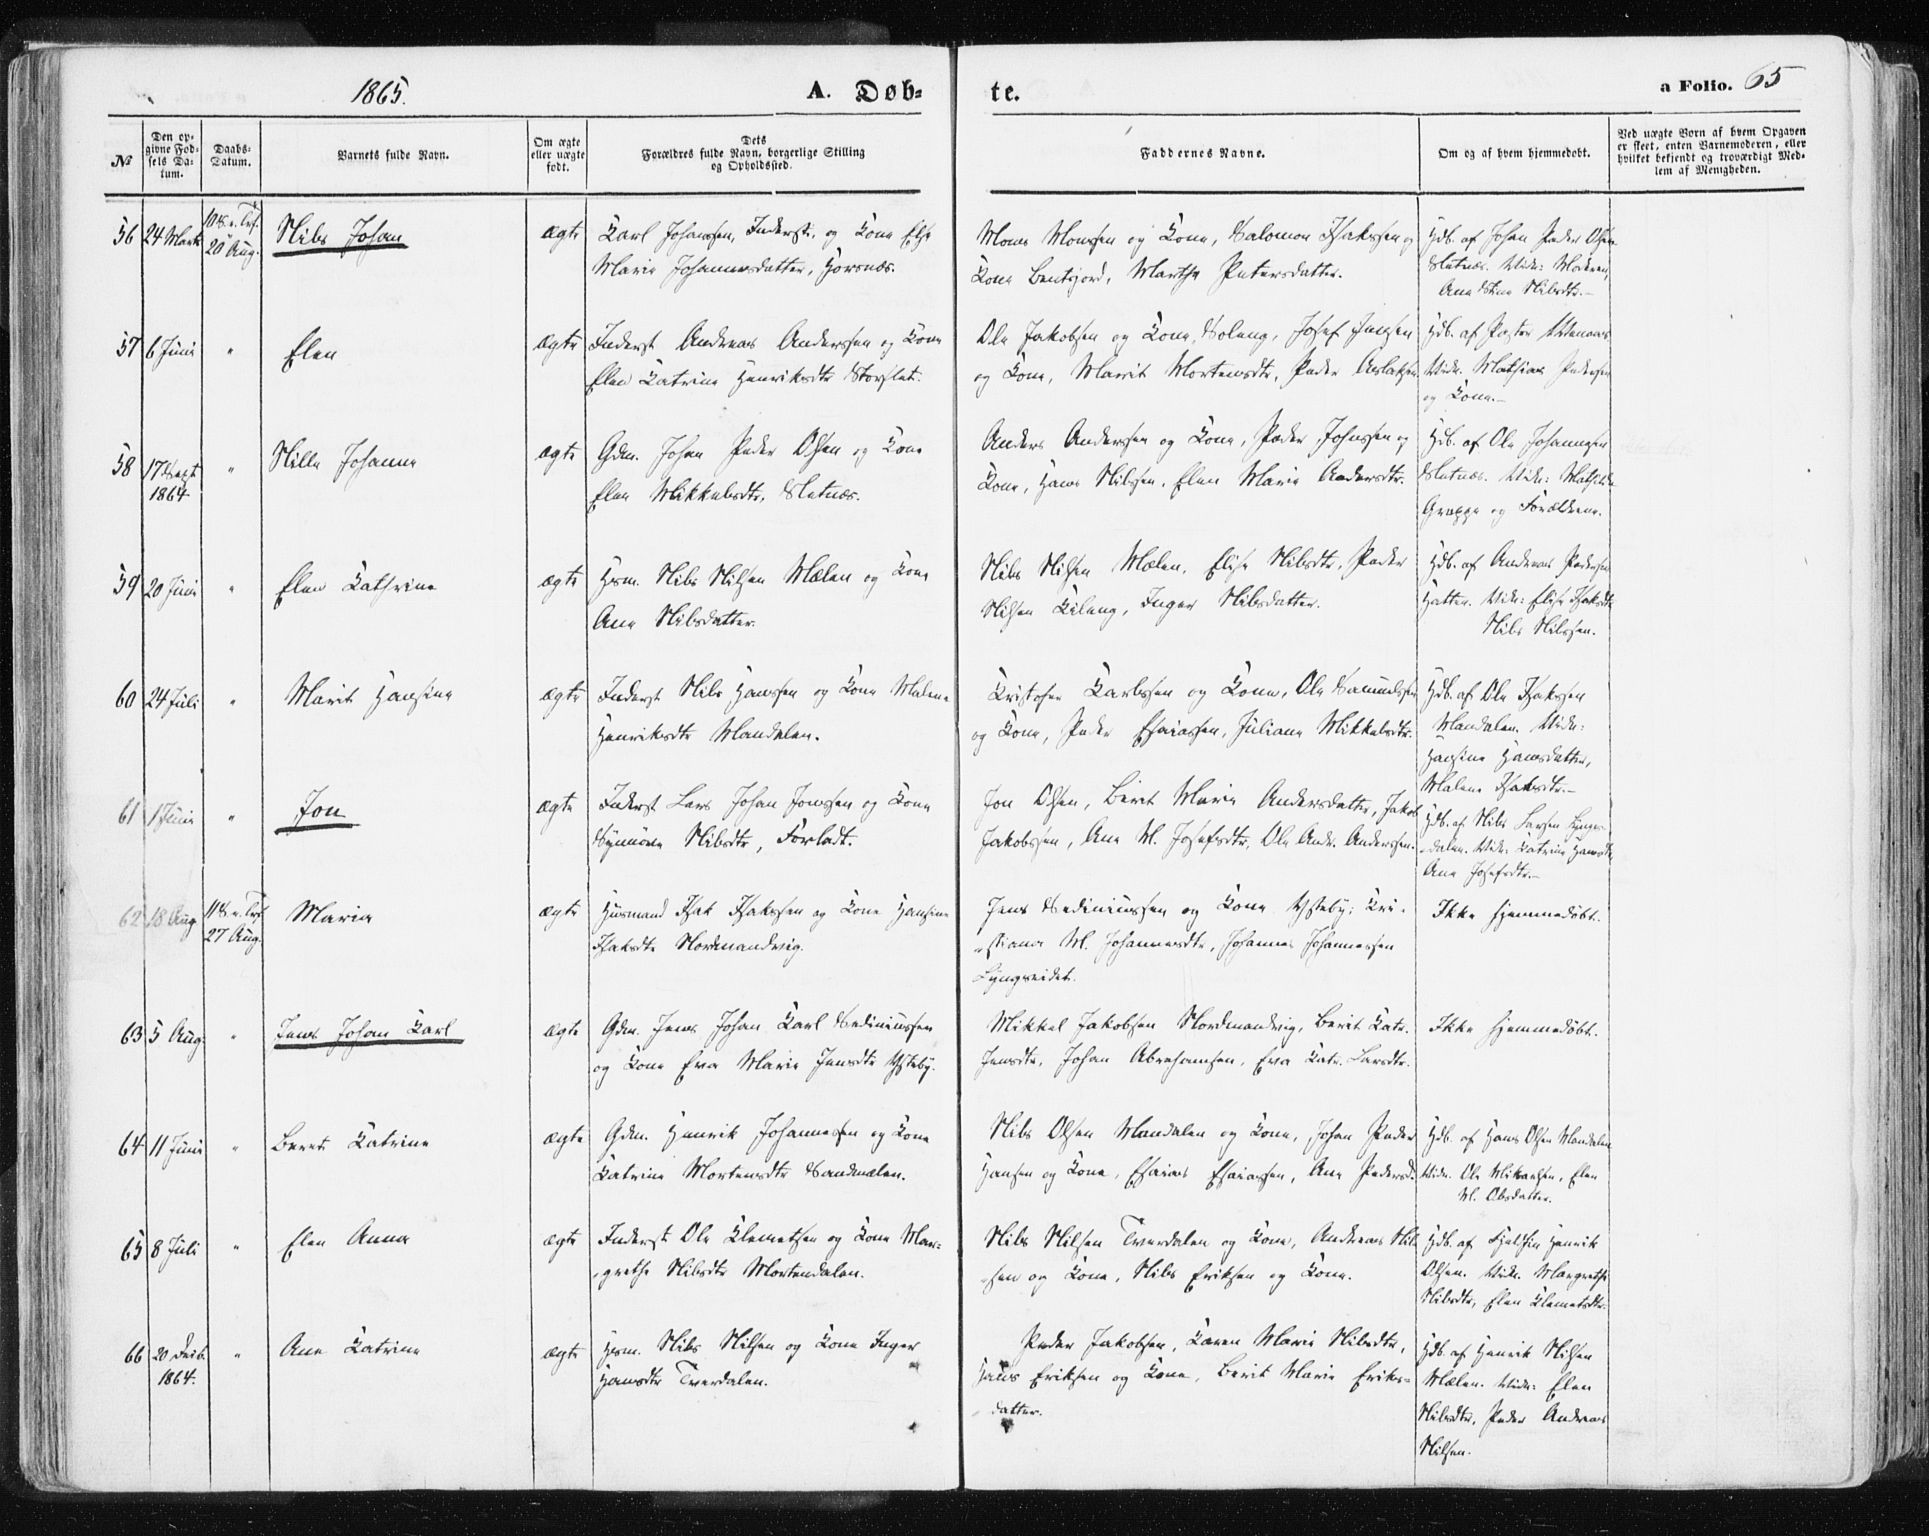 1865.
A. Døb-
te.
a Folio. 65
№
Den op-
givne Fød-
sels Da-
tum.
Daabs-
Datum.
Barnets fulde Navn.
Om ægte
eller uægte
født.
Dets
Forældres fulde Navn, borgerlige Stilling
og Opholdssted.
Faddernes Navne.
Om og af hvem hjemmedøbt.
Ved uægte Børn af hvem Opgaven
er skeet, enten Barnemoderen, eller
hvilket bekjendt og troværdigt Med-
lem af Menigheden.
56 24 Marts 10 S. e. Tref.
20 Aug.
Nils Johan
ægte
Karl Johanssen, Inderst, og Kone Else
Marie Johannesdatter, Horsnæs.
Mons Monssen og Kone, Salomon Isakssen og
Kone Bentsjord, Marthe Petersdatter.
Hdb. af Johan Peder Olsen
Sletnæs. Vidn: Moderen,
Ane Stine Nilsdtr.-
57 6 Juni "
Elen
ægte
Inderst Andreas Anderssen og Kone
Elen Katrine Henriksdtr Storslet.
Ole Jakobsen og Kone, Soleng, Josef Jenssen
og Kone, Marit Mortensdtr, Peder Aslaksen.
Hdb. af
Vidn. Mathias Pedersen
og Kone.-
58 17 Sept "
1864
Nille Johanne
ægte
Gdm. Johan Peder Olsen og Kone
Elen Mikkelsdtr, Sletnæs.
Anders Anderssen og Kone, Peder Johnssen og
Kone, Hans Nilssen, Elen Marie Andersdtr.
Hdb. af Ole Johannesen
Sletnæs. Vidn: Mathilde
Grappe og Forældrene.
59 20 Juni "
Elen Kathrine
ægte
Hsm. Nils Nilsen Mælen og Kone
Ane Nilsdatter.
Nils Nilsen Mælen, Elise Nilsdtr, Peder
Nilsen Kileng, Inger Nilsdatter.
Hdb. af Andreas Pedersen
Hatten. Vidn: Elise Isaksdtr
Nils Nilssen.
60 24 Juli "
Marit Hansine
ægte
Inderst Nils Hanssen og Kone Malene
Henriksdtr Mandalen.
Kristofer Karlssen og Kone, Ole Samuelsen
og Kone, Peder Esaiassen, Juliane Mikkelsdtr.
Hdb. af Ole Isakssen
Mandalen. Vidn:
Hansine Hansdatter,
Malene Isaksdtr.-
61 1 Juni "
Jon
ægte
Inderst Lars Johan Jonssen og Kone
Synnøve Nilsdtr, Forladt.
Jon Olsen, Berit Marie Andersdatter, Jakob
Jakobssen, Ane M. Josefsdtr, Ole Andr. Anderssen.
Hdb. af Nils Larsen Lyngs-
dalen. Vidn: Katrine Hansdtr,
Ane Josefsdtr.-
62 18 Aug 11 S. e. Tref.
27 Aug.
Maria
ægte
Husmand Isak Isakssen og Kone Hansine
Isaksdtr Nordmandvig.
Jens Sediniussen og Kone Ysteby; Kri-
stiane M. Johannesdtr, Johannes Johannessen
Lyngseidet.
Ikke hjemmedøbt.
63 5 Aug "
Jens Johan Karl
ægte
Gdm. Jens Johan Karl Sediniussen
og Kone Eva Marie Jensdtr Ysteby.
Mikkel Jakobsen Nordmandvig, Berit Katr.
Jensdtr, Johan Abrahamsen, Eva Katr. Larsdtr.
Ikke hjemmedøbt.
64 11 Juni "
Beret Katrine
ægte
Gdm. Henrik Johannessen og Kone
Katrine Mortensdtr Sandmælen.
Nils Olsen Mandalen og Kone, Johan Peder
Hansen og Kone, Esaias Esaiassen, Ane Pedersd.
Hdb. af Hans Olsen Mandalen
Vidn. Ole Mikkelsen, Elen
M. Olsdatter.
65 8 Juli "
Elen Anna
ægte
Inderst Ole Klemetsen og Kone Mar-
grethe Nilsdtr Mortendalen.
Nils Nilsen Tverdalen og Kone, Andreas Nil-
sen og Kone, Nils Eriksen og Kone.
Hdb. af Henrik
Olsen. Vidn. Margrethe
Nilsdtr, Elen Klemetsdtr.
66 20 Decb. "
1864.
Ane Katrine
ægte
Hsm. Nils Nilsen og Kone Inger
Hansdtr Tverdalen.
Peder Jakobsen, Karen Marie Nilsdtr,
Hans Eriksen og Kone, Berit Marie Eriks-
datter.
Hdb. af Henrik Nilsen
Mælen. Vidn: Elen
Nilsdtr, Peder Andreas
Nilsen.